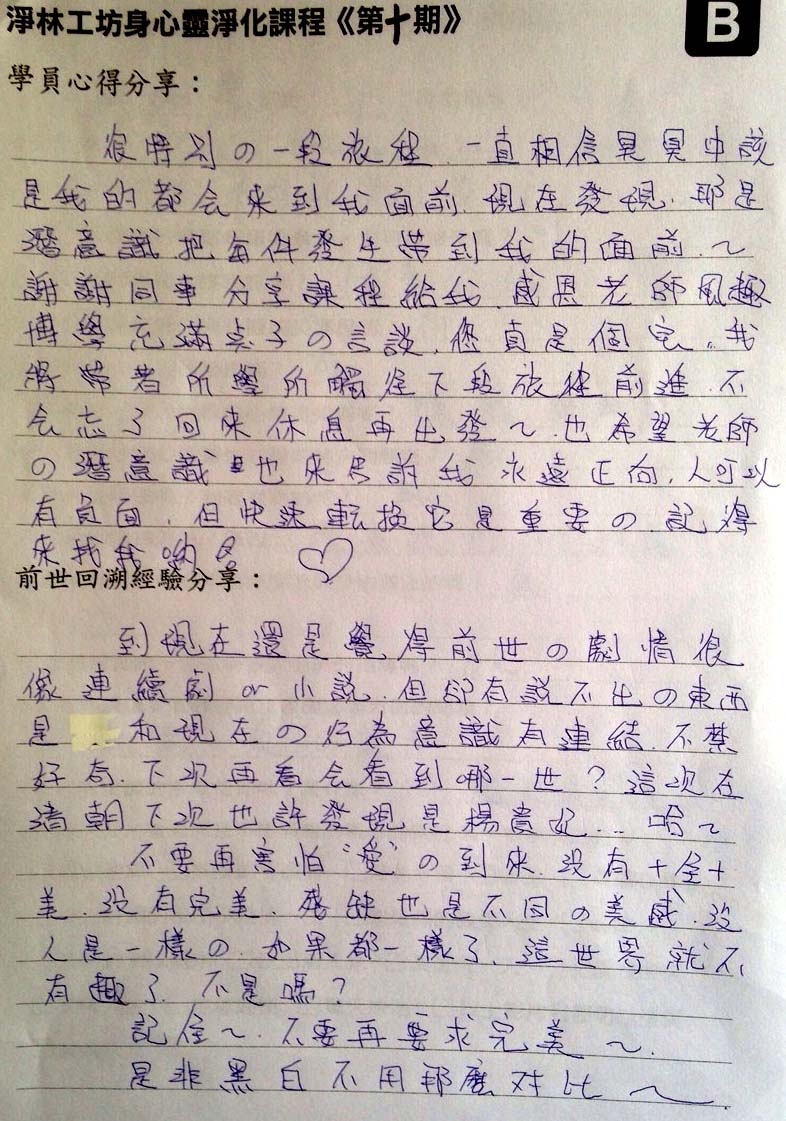 淨林工坊身心靈淨化課程《第十期》
B
學員心得分享：
很特別の一段旅程，一直相信冥冥中該
是我的都会來到我面前，現在發現，那是
潛意識把每件發生帶到我的面前。～
謝謝同事分享課程給我，感恩老師風趣
博學充滿点子の言談，您真是個宝，我
將帶著所學所觸往下段旅程前進，不
会忘了回來休息再出發～，也希望老師
の潛意識也來告訴我永遠正向，人可以
有負面，但快速転換它是重要の，記得
來找我喲。
前世回溯經驗分享：
到現在還是覺得前世の劇情很
像連續劇or小說，但卻有說不出の東西
是 和現在の行為意識有連結，不禁
好奇，下次再看会看到哪一世？這次在
清朝下次也許發現是楊貴妃...哈～
不要再害怕"愛"の到來，沒有十全十
美，沒有完美，殘缺也是不同の美感，沒
人是一樣の，如果都一樣了，這世界就不
有趣了，不是嗎？
記住～，不要再要求完美～，
是非黑白不用那麼対比～。